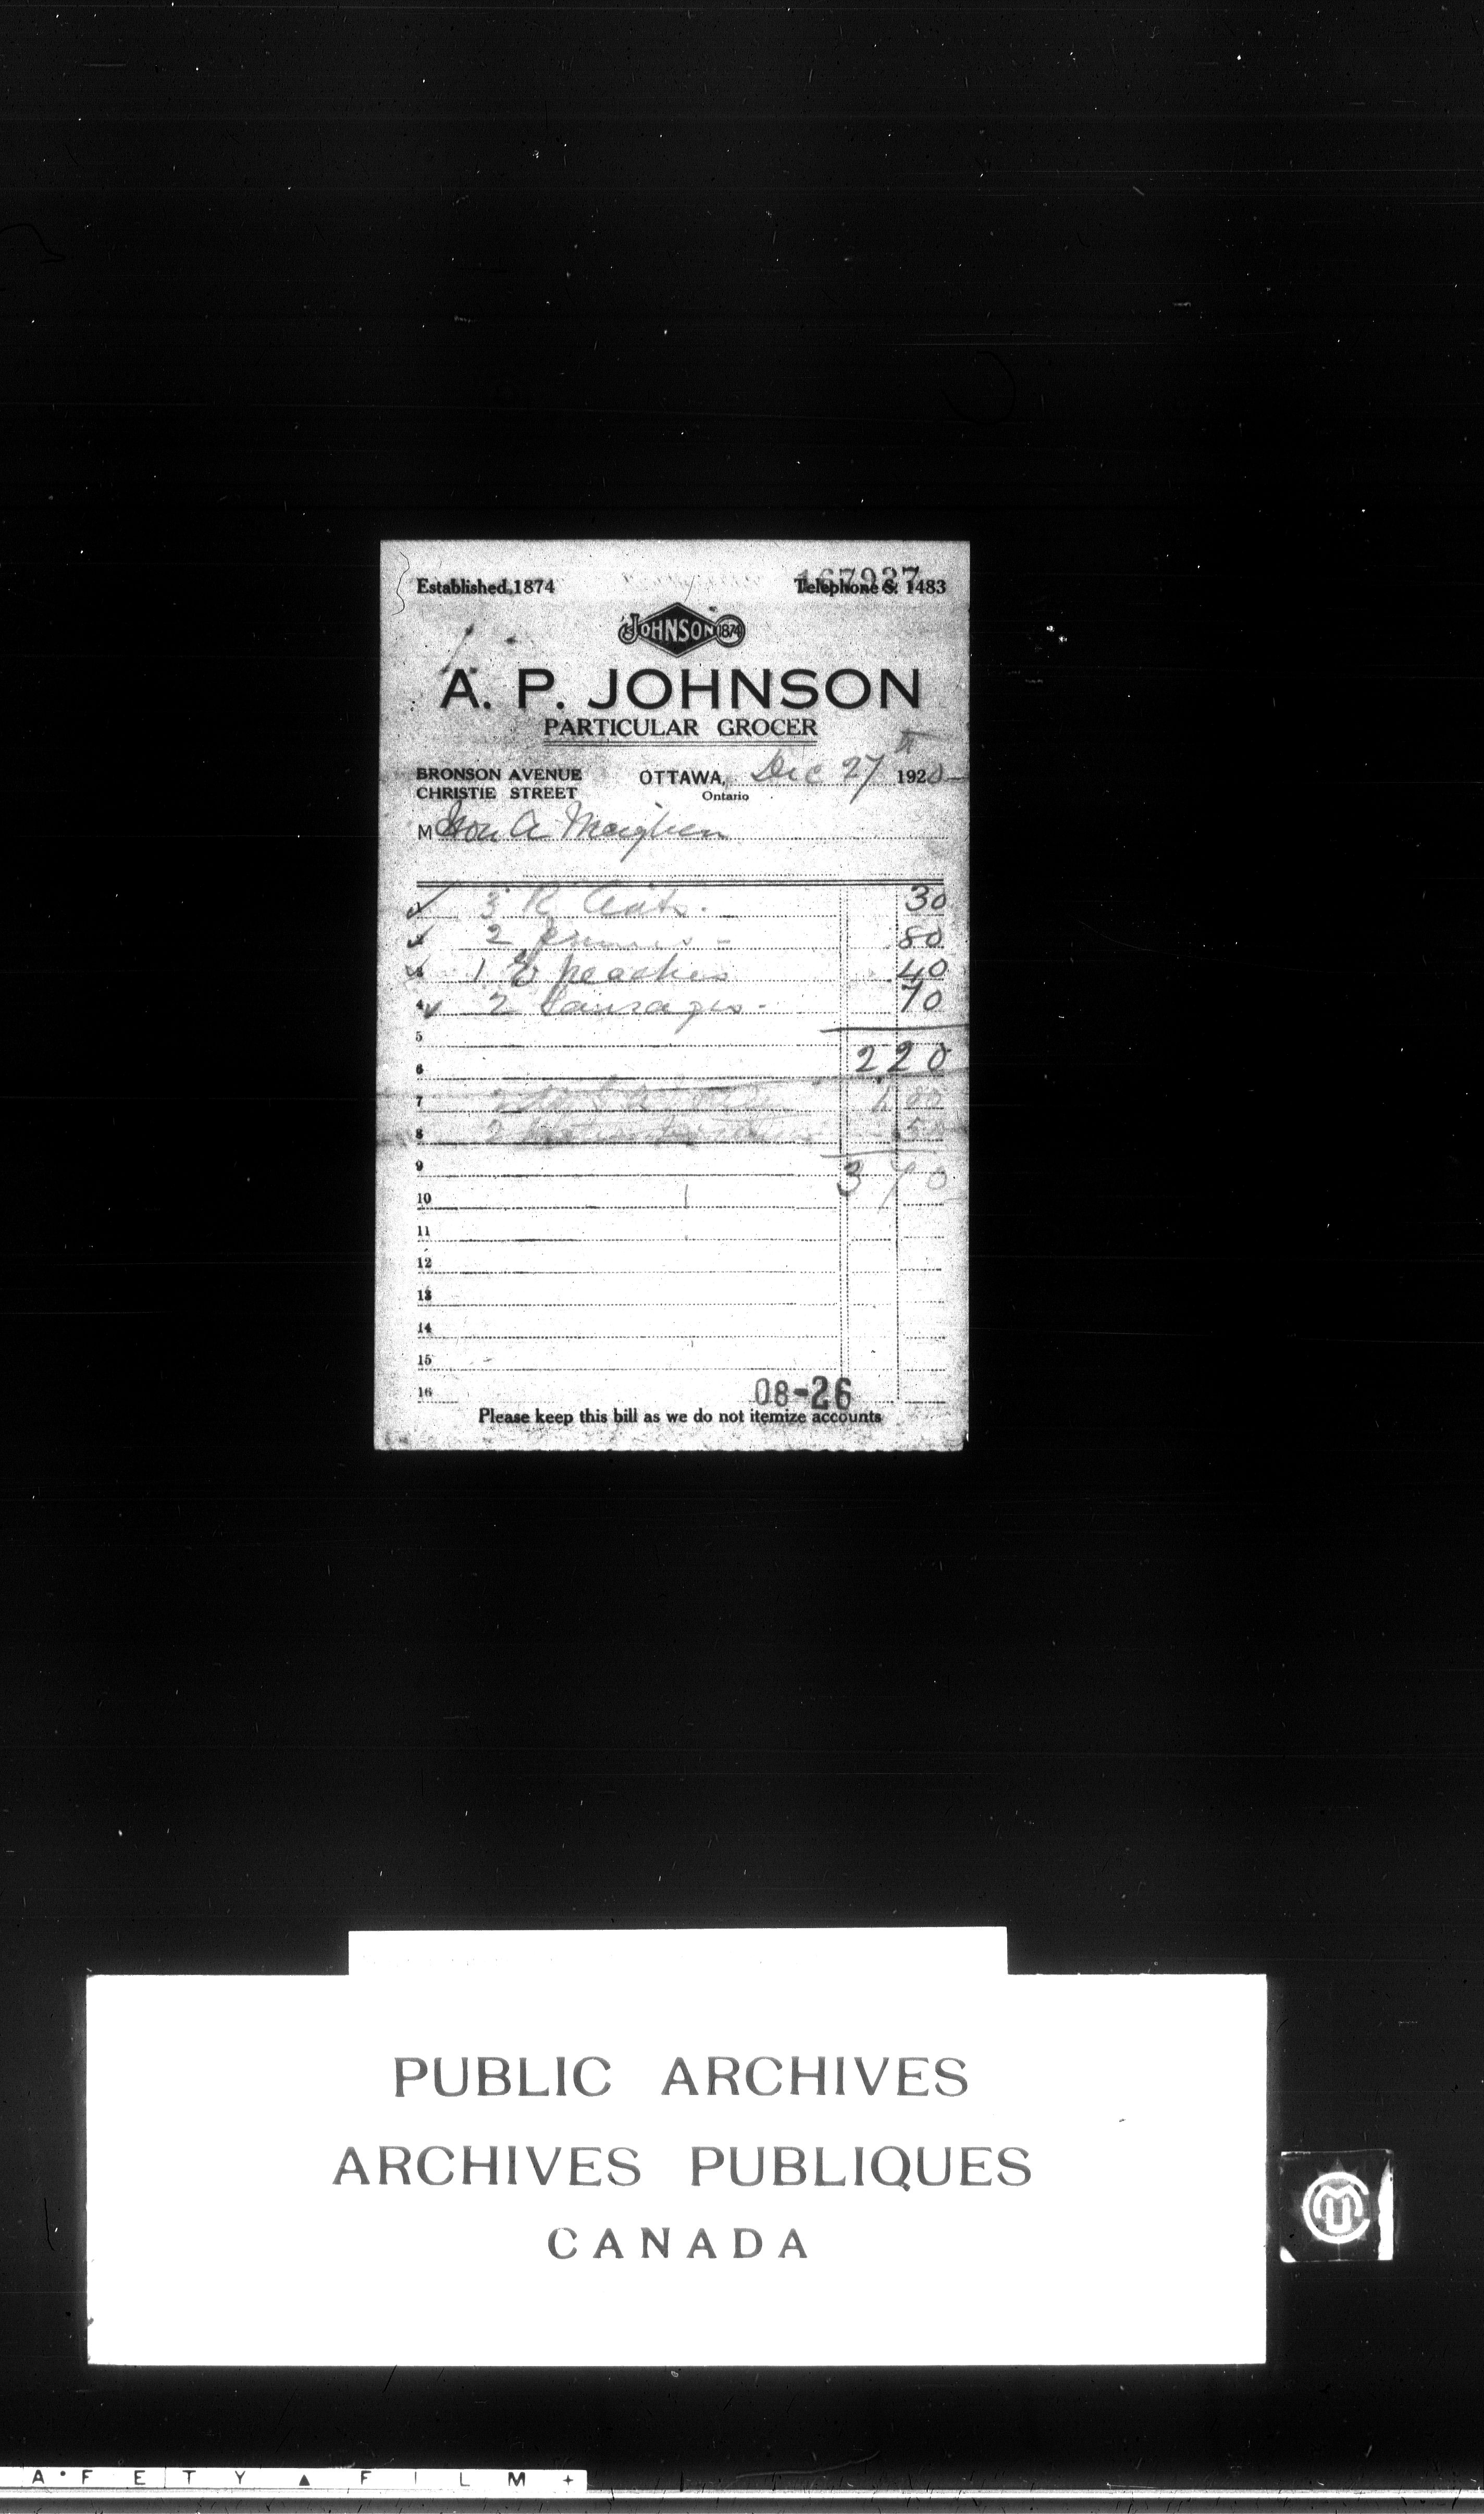 167937
Established 1874 Telephone S. 1483
JOHNSON 1874
A. P. JOHNSON
PARTICULAR GROCER
BRONSON AVENUE OTTAWA, Dec 27th 1920
CHRISTIE STREET Ontario
M Hon A Meighen
1 3 R Oats. 30
2 2 prunes - 80
3 1 peaches 40
4 2 Sausages - 70
5
6 2 20
7 2
8 2 50
9 3 70
10
11
12
13
14
15
16 08-26
Please keep this bill as we do not itemize accounts
PUBLIC ARCHIVES
ARCHIVES PUBLIQUES
CANADA
A F E T Y ▲ F I L M +